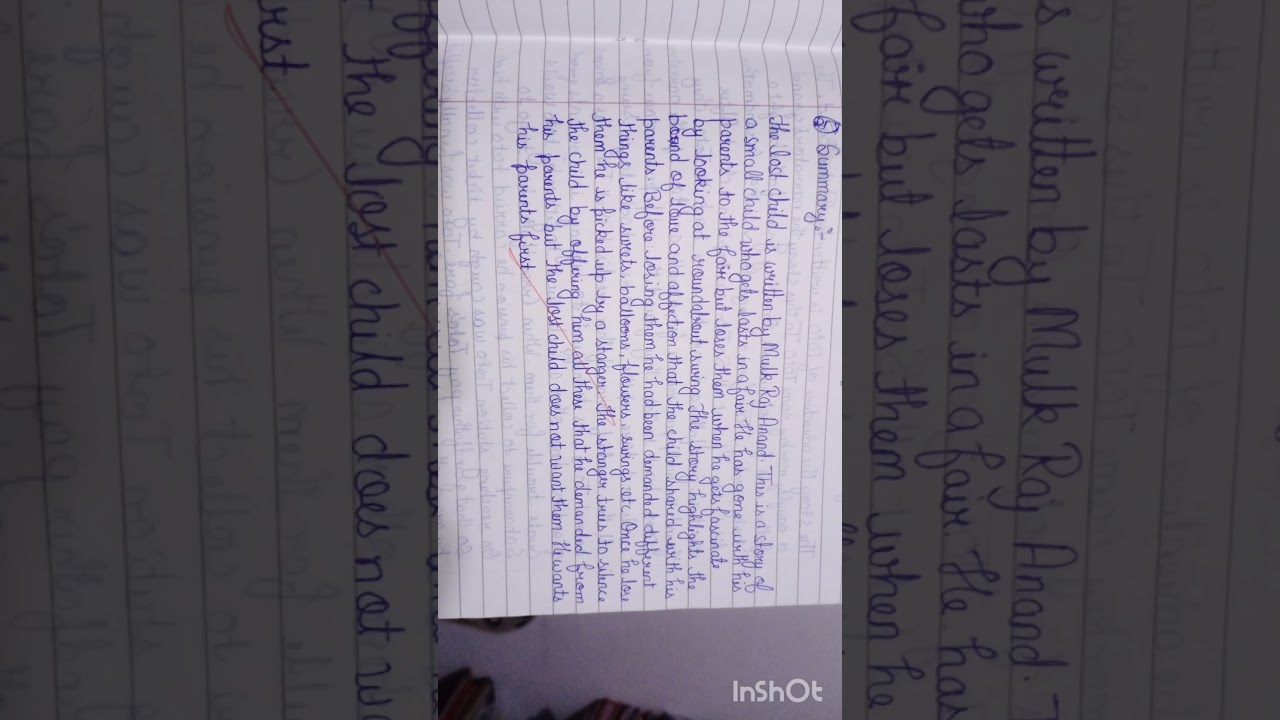 Summary:-
The lost child is written by Mulk Raj Anand. This is a story of
a small child who gets losts in a fair. He has gone with his
parents to the fair but loses them when he gets fascinate
by looking at roundabout swing. The story highlights the
bond of love and affection that the child shared with his
parents. Before losing them he had been demanded different
things like swets, balloons, flowers, swings etc. Once he lose
them he is picked up by a stanger. The stanger tries to silence
the child by offering him all these that he demanded from
his parents but the lost child does not want them He wants
his parents first
InShOt